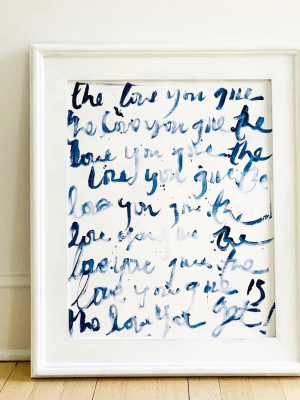 the love you give
the love you give the
love you give the
love you give the
love you give the
love you give the
love you give the
love you give is
the love you get!